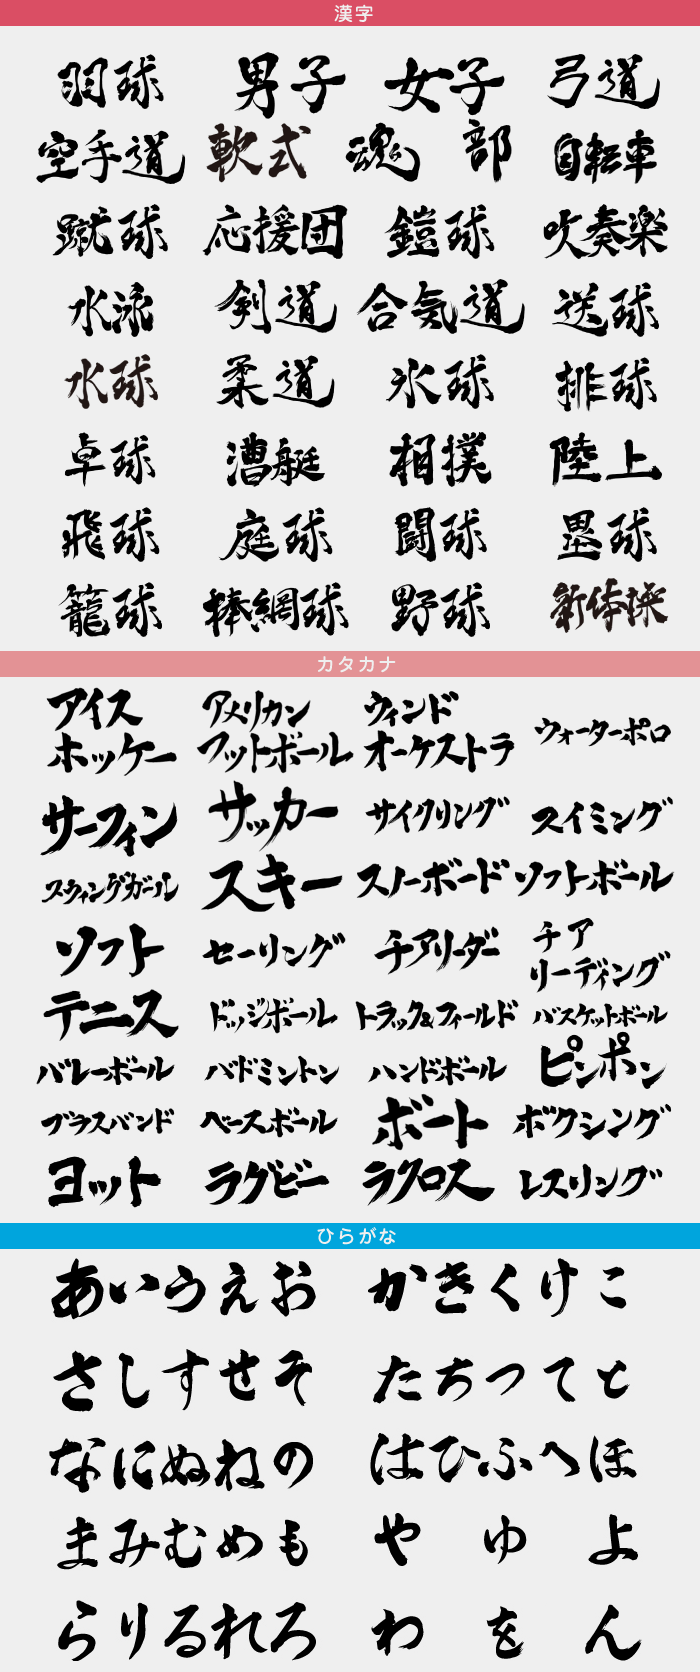 漢字
羽球 男子 女子 弓道
空手道 軟式 魂 部 自転車
蹴球 応援団 鎧球 吹奏楽
水泳 剣道 合気道 送球
水球 柔道 氷球 排球
卓球 漕艇 相撲 陸上
飛球 庭球 闘球 塁球
籠球 棒網球 野球 新体操
カタカナ
アイス
ホッケー
アメリカン
フットボール
ウィンド
オーケストラ
ウォーターポロ
サーフィン サッカー サイクリング スイミング
スウィングガール スキー スノーボード ソフトボール
ソフト セーリング チアリーダー
チア
リーディング
テニス ドッジボール トラック&フィールド バスケットボール
バレーボール バドミントン ハンドボール ピンポン
ブラスバンド ベースボール ボート ボクシング
ヨット ラグビー ラクロス レスリング
ひらがな
あいうえお かきくけこ
さしすせそ たちつてと
なにぬねの はひふへほ
まみむめも や ゆ よ
らりるれろ わ を ん